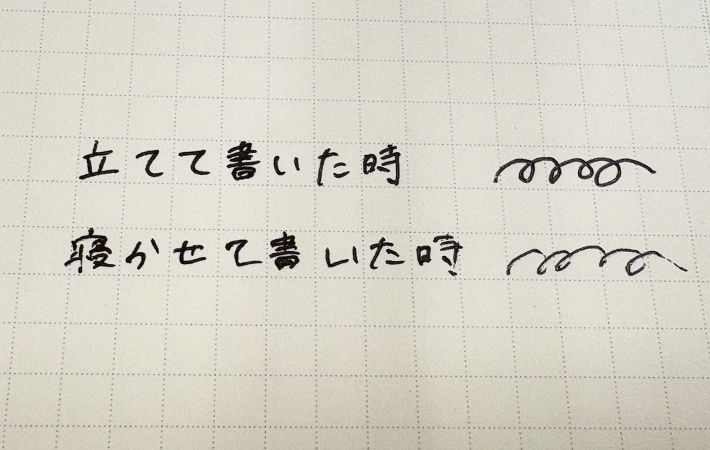 立てて書いた時
寝かせて書いた時